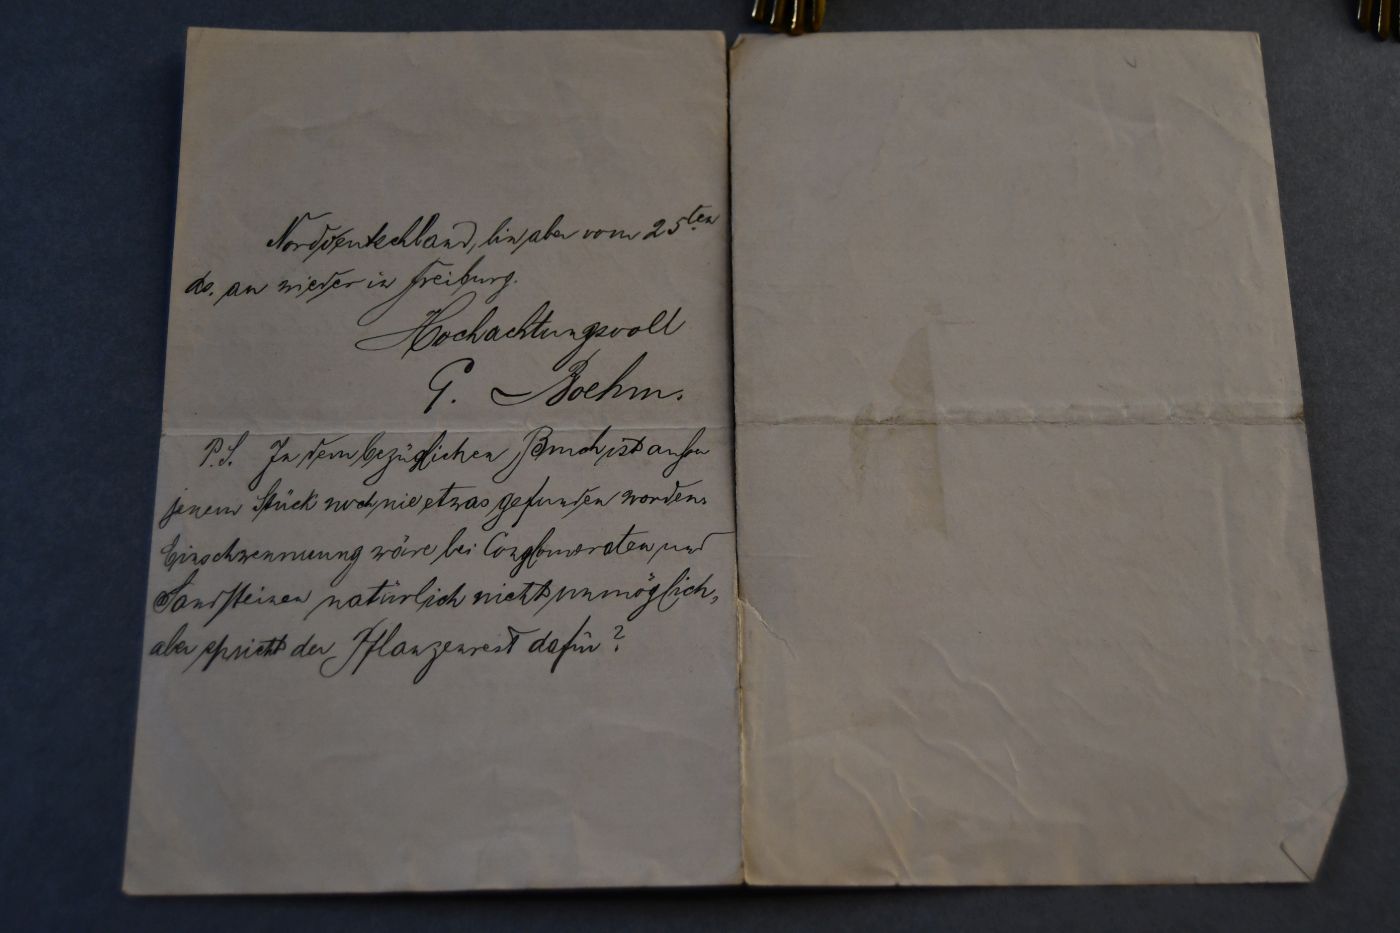 Norddeutschland, bin aber vom 25ten
ds. an wieder in Freiburg.
Hochachtungsvoll
G. Boehm.
P.S. In dem bezüglichen Bruch ist außer
jenem Stück noch nie etwas gefunden worden.
Einschwemmung wäre bei Conglomeraten und
Sandsteinen natürlich nicht unmöglich,
aber spricht der Pflanzenrest dafür?